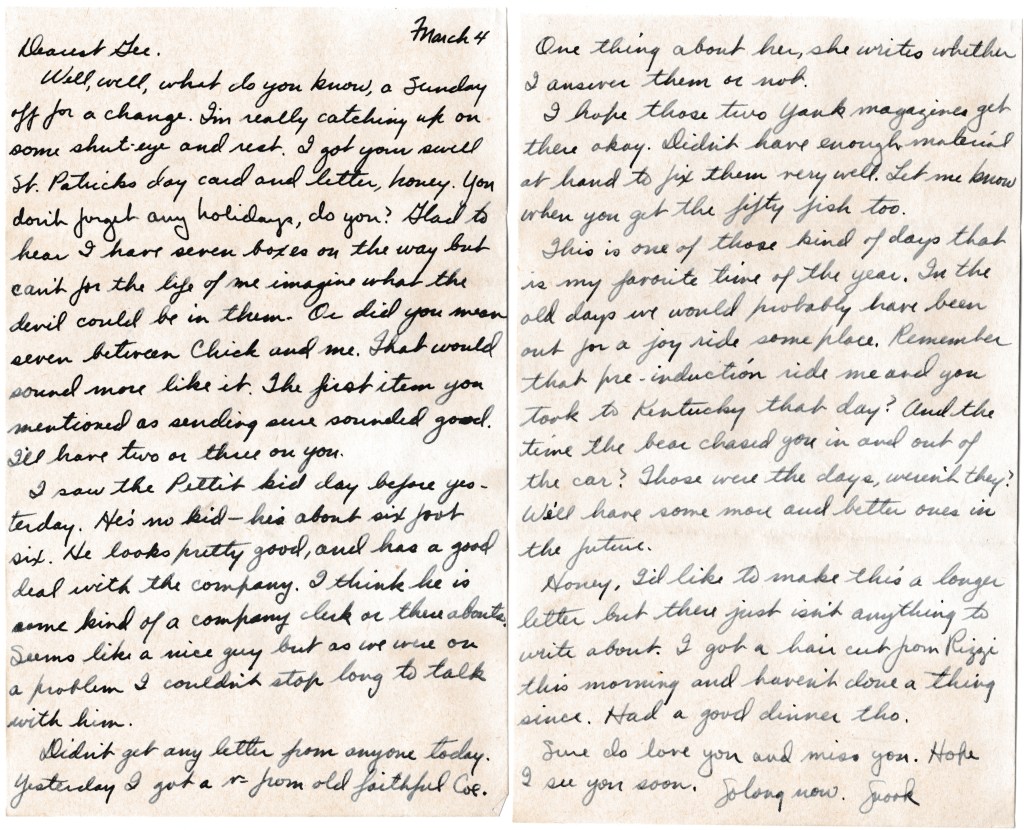 March 4
Dearest Gee.
Well, well, what do you know, a Sunday
off for a change. I'm really catching up on
some shut-eye and rest. I got your swell
St. Patricks day card and letter, honey. You
don't forget any holidays, do you? Glad to
hear I have seven boxes on the way but
can't for the life of me imagine what the
devil could be in them. Or did you mean
seven between Chick and me. That would
sound more like it. The first item you
mentioned as sending sure sounded good.
I'll have two or three on you.
I saw the Pettit kid day before yes-
terday. He's no kid - he's about six foot
six. He looks pretty good, and has a good
deal with the company. I think he is
some kind of a company clerk or there abouts.
Seems like a nice guy but as we were on
a problem I couldn't stop long to talk
with him.
Didn't get any letter from anyone today.
Yesterday I got a v- from old faithful Coe.
One thing about her, she writes whether
I answer them or not.
I hope those two Yank magazines get
there okay. Didn't have enough material
at hand to fix them very well. Let me know
when you get the fifty fish too.
This is one of those kind of days that
is my favorite time of the year. In the
old days we would probably have been
out for a joy ride some place. Remember
that pre-induction ride me and you
took to Kentucky that day? And the
time the bear chased you in and out of
the car? Those were the days, weren't they?
We'll have some more and better ones in
the future.
Honey, I'd like to make this a longer
letter but there just isn't anything to
write about. I got a hair cut from Rizzi
this morning and haven't done a thing
since. Had a good dinner tho.
Sure do love you and miss you. Hope
I see you soon. So long now. Snook